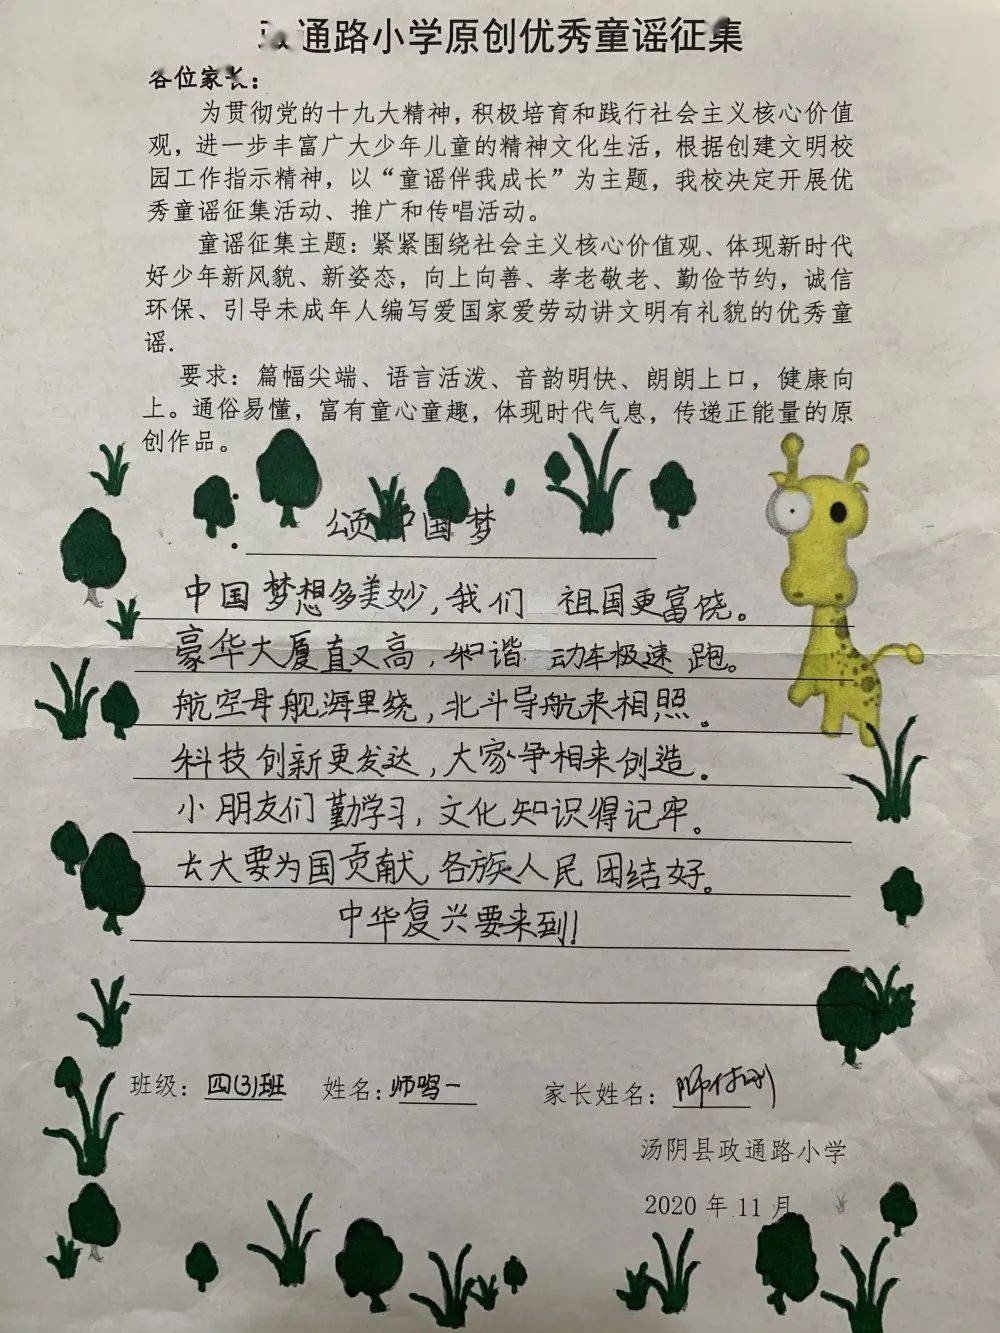 通路小学原创优秀童谣征集
各位家长：
为贯彻党的十九大精神，积极培育和践行社会主义核心价值
观，进一步丰富广大少年儿童的精神文化生活，根据创建文明校
园工作指示精神，以“童谣伴我成长”为主题，我校决定开展优
秀童谣征集活动、推广和传唱活动。
童谣征集主题：紧紧围绕社会主义核心价值观、体现新时代
好少年新风貌、新姿态，向上向善、孝老敬老、勤俭节约，诚信
环保、引导未成年人编写爱国家爱劳动讲文明有礼貌的优秀童
谣.
要求：篇幅尖端、语言活泼、音韵明快、朗朗上口，健康向
上。通俗易懂，富有童心童趣，体现时代气息，传递正能量的原
创作品。
颂中国梦
中国梦想多美妙，我们 祖国更富饶。
豪华大厦直又高，和谐 动车极速跑。
航空母舰海里绕，北斗导航来相照。
科技创新更发达，大家争相来创造。
小朋友们勤学习，文化知识得记牢。
长大要为国贡献，各族人民团结好。
中华复兴要来到！
班级：四(3)班 姓名：师鸣一 家长姓名：
汤阴县政通路小学
2020 年 11 月